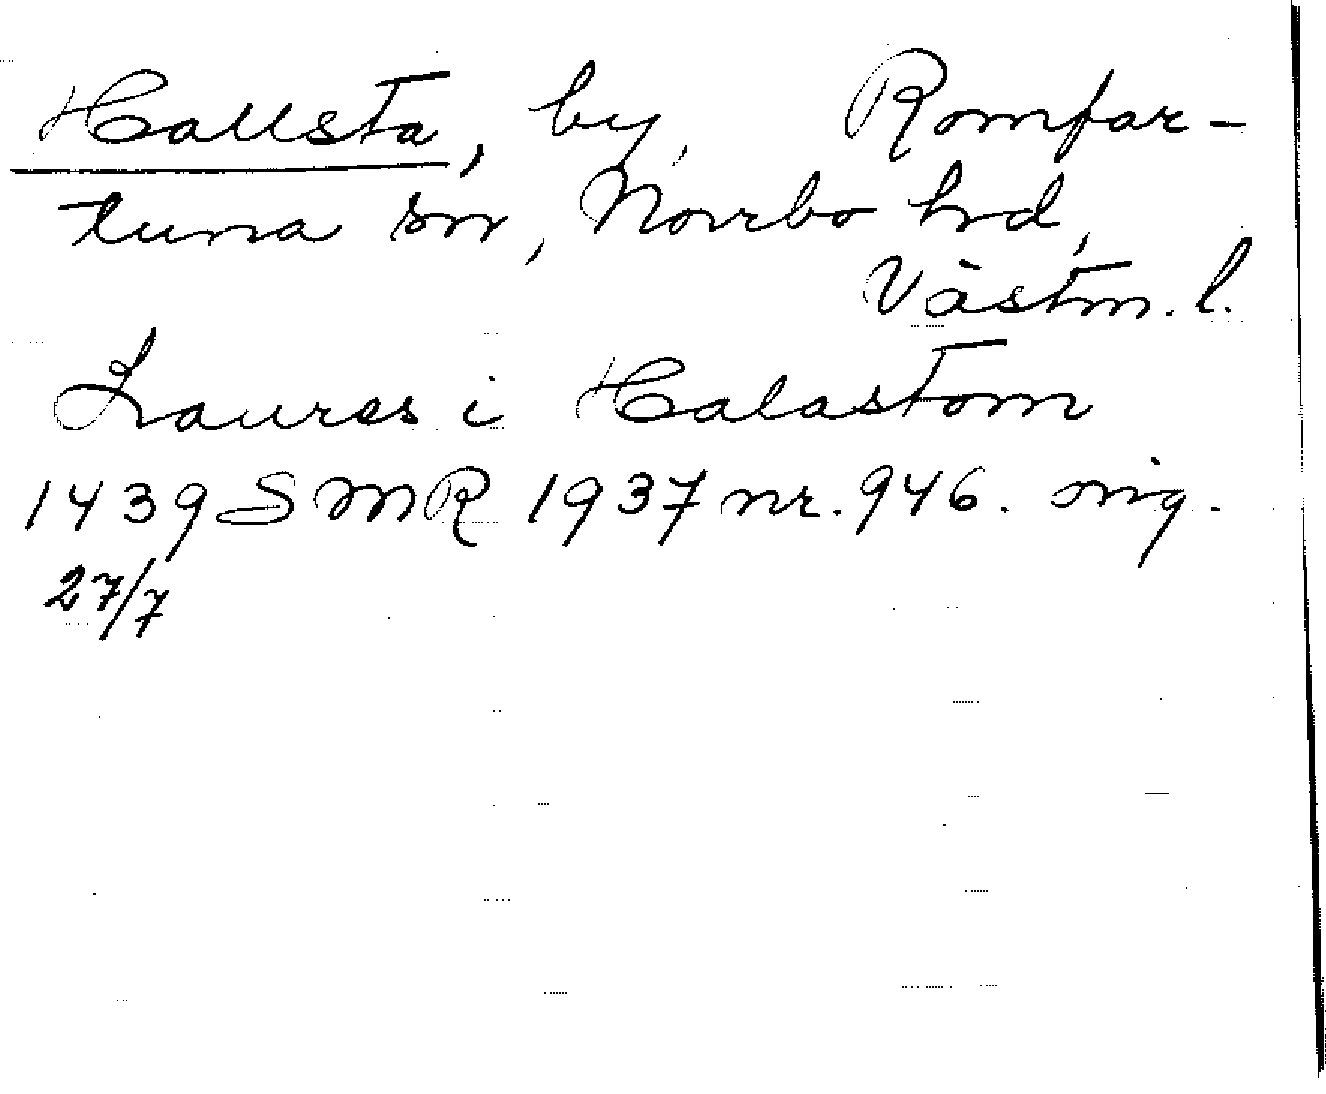 Hallsta, by, Romfar-
tuna sn, Norrbo hrd,
Västm. l.
Laures i Halastom
1439 SMR 1937 nr. 946. orig.
27/7